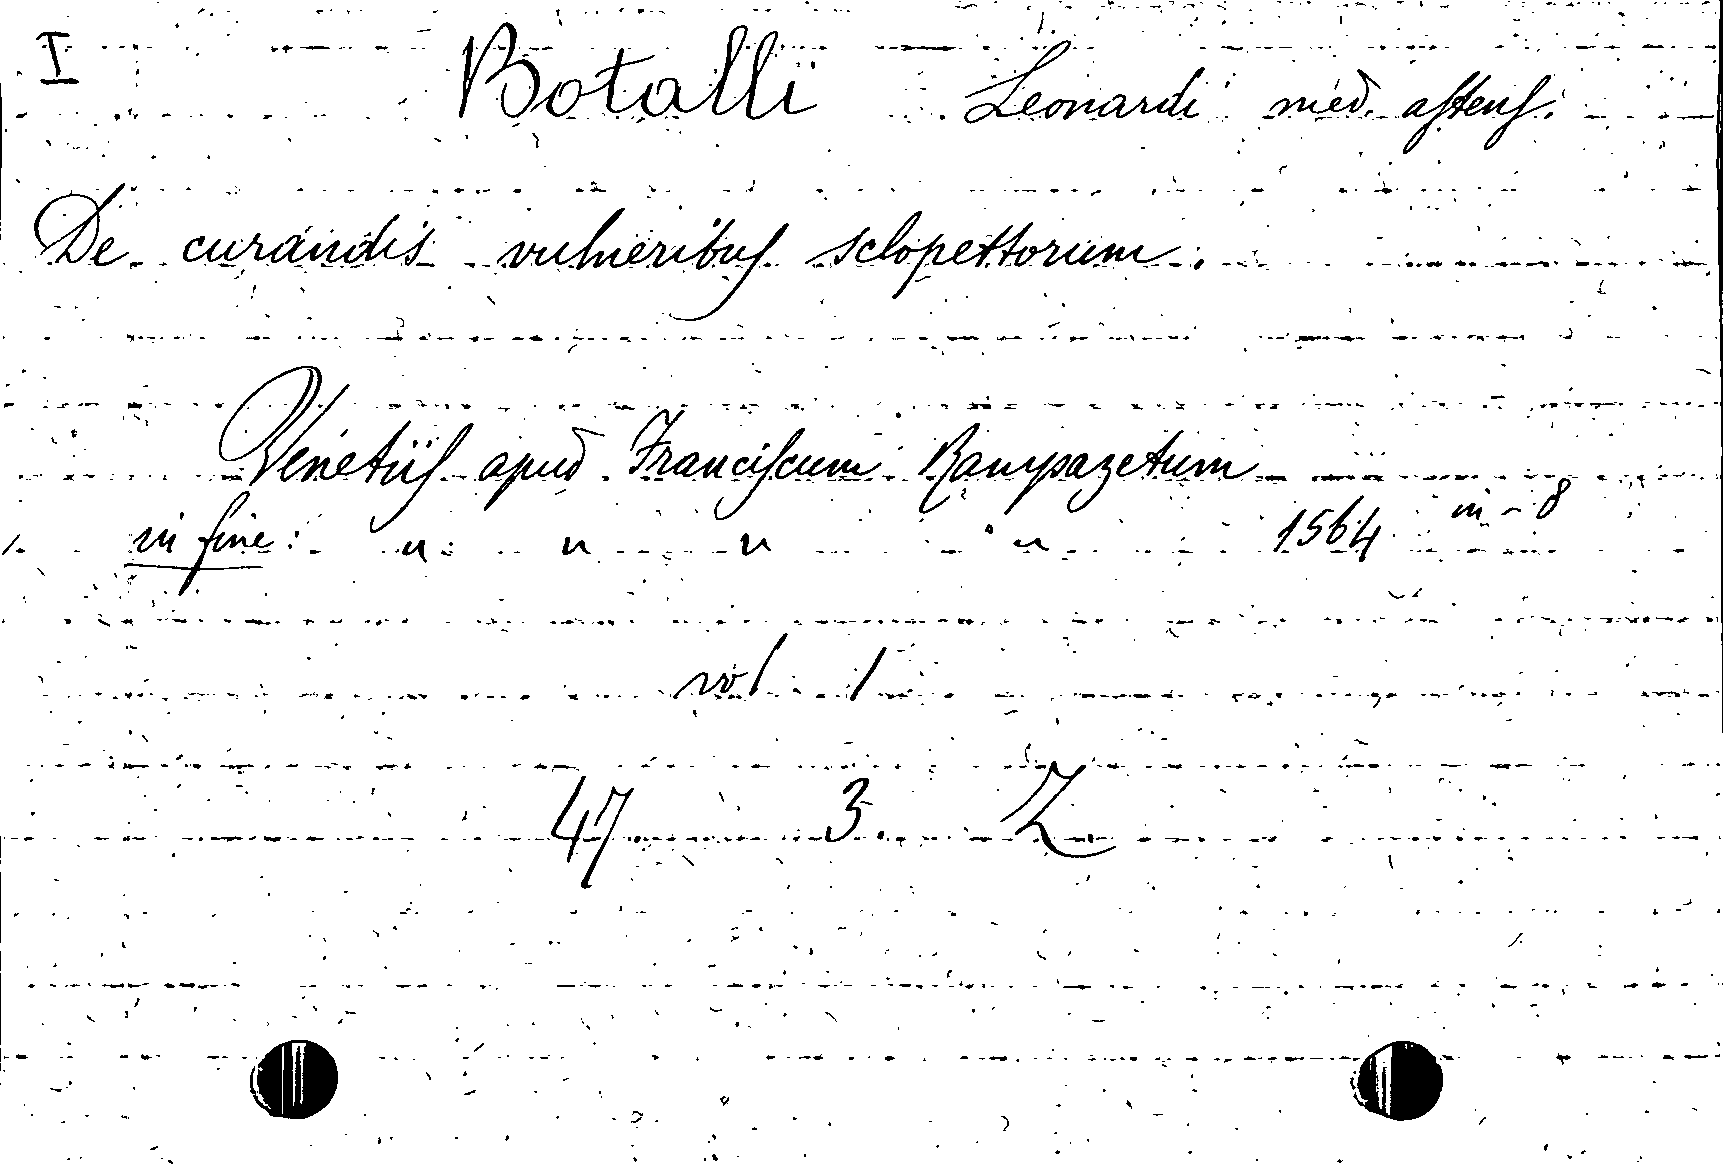 I Botalli Leonardi med. astens.
De curandis vulneribus sclopettorum.
Venetiis apud Franciscum Rampazetum
in fine: " " " " 1564 in-8
vol 1
47 3. Z